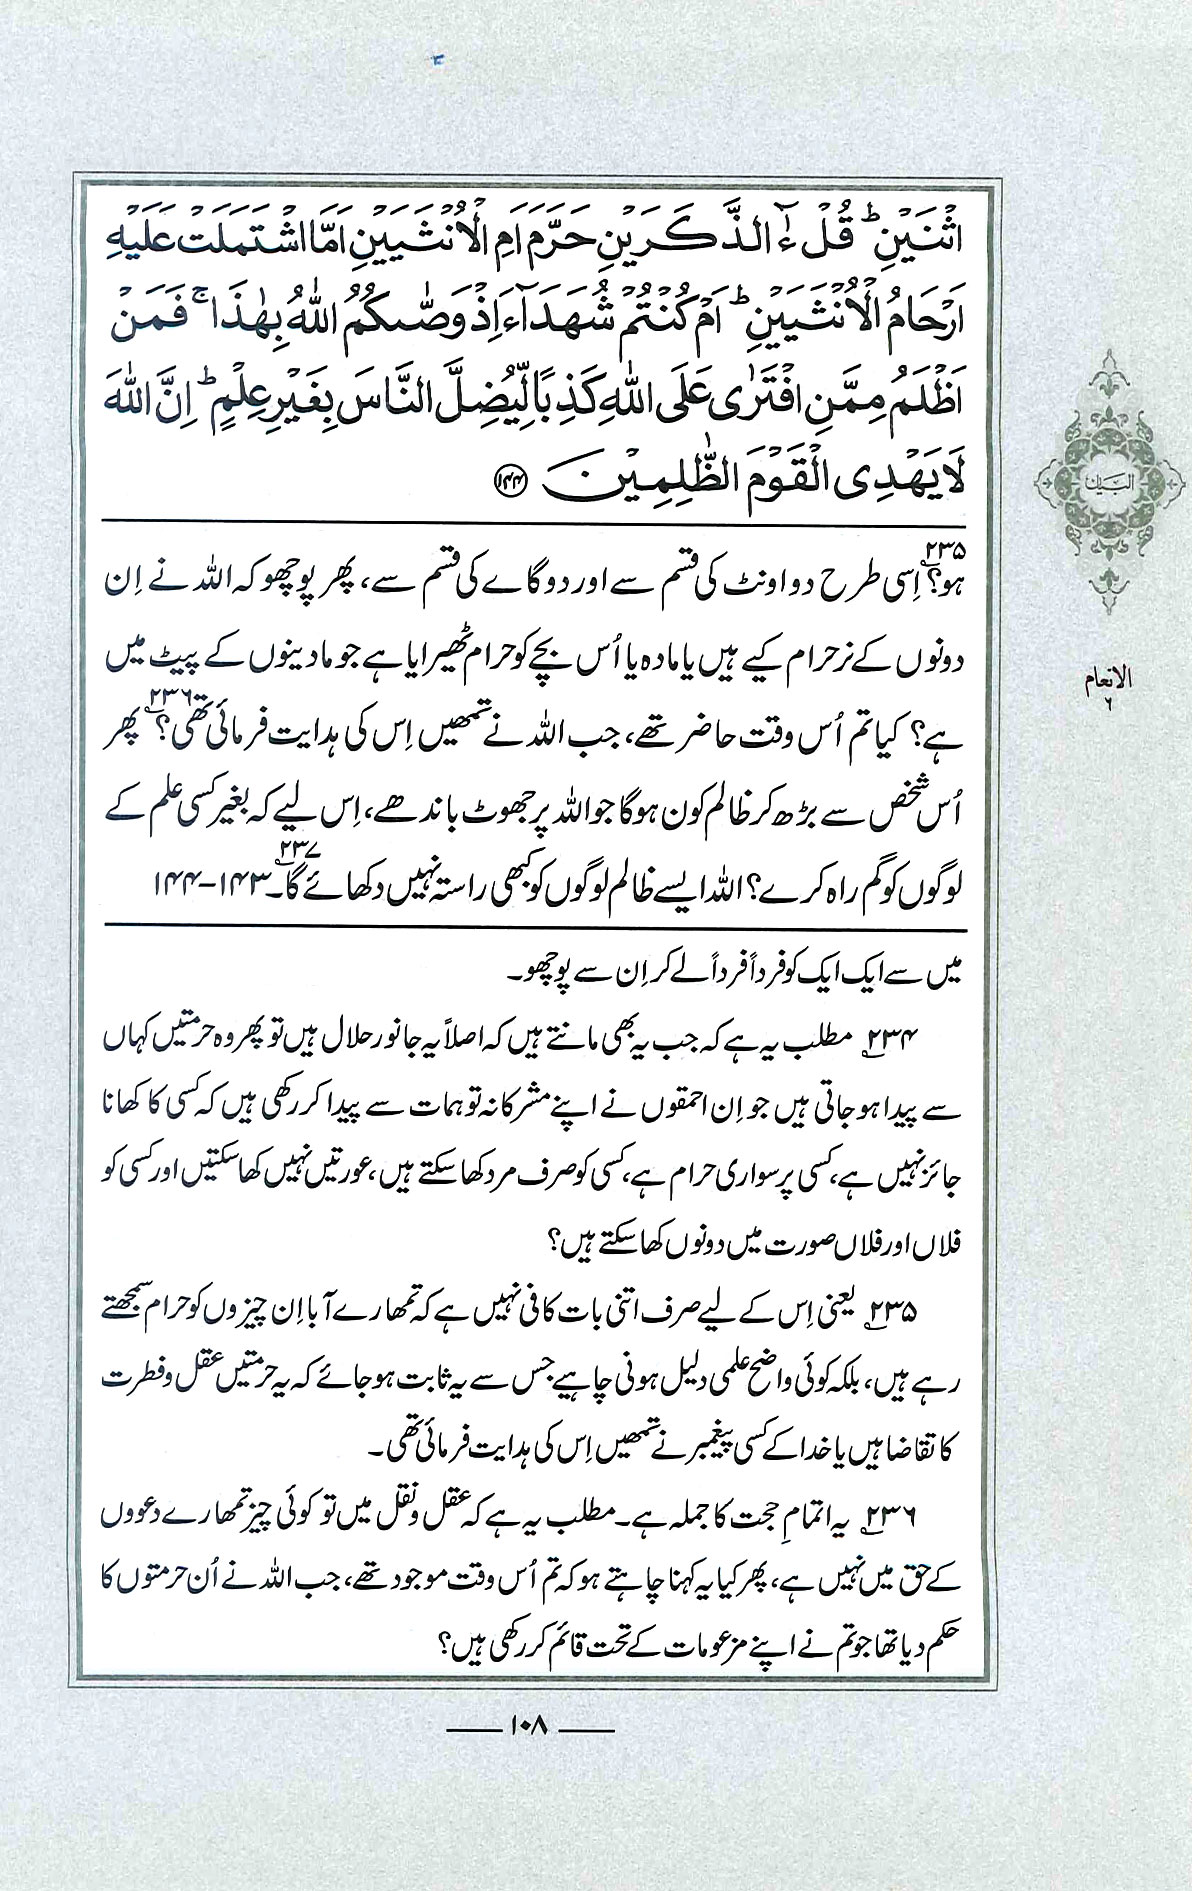 اثْنَيْنِ ؕ قُلْ ءٰٓالذَّكَرَيْنِ حَرَّمَ اَمِ الْاُنْثَيَيْنِ اَمَّا اشْتَمَلَتْ عَلَيْهِ
اَرْحَامُ الْاُنْثَيَيْنِ ؕ اَمْ كُنْتُمْ شُهَدَآءَ اِذْ وَصّٰىكُمُ اللّٰهُ بِهٰذَا ۚ فَمَنْ
اَظْلَمُ مِمَّنِ افْتَرٰى عَلَى اللّٰهِ كَذِبًا لِّيُضِلَّ النَّاسَ بِغَيْرِ عِلْمٍ ؕ اِنَّ اللّٰهَ
لَا يَهْدِى الْقَوْمَ الظّٰلِمِيْنَ ﴿۱۴۴﴾
ہو؟۲۳۵ اِسی طرح دو اونٹ کی قسم سے اور دو گاے کی قسم سے، پھر پوچھو کہ اللہ نے اِن
دونوں کے نر حرام کیے ہیں یا مادہ یا اُس بچے کو حرام ٹھیرایا ہے جو مادینوں کے پیٹ میں
ہے؟ کیا تم اُس وقت حاضر تھے، جب اللہ نے تمھیں اِس کی ہدایت فرمائی تھی؟۲۳۶ پھر
اُس شخص سے بڑھ کر ظالم کون ہوگا جو اللہ پر جھوٹ باندھے، اِس لیے کہ بغیر کسی علم کے
لوگوں کو گم راہ کرے؟ اللہ ایسے ظالم لوگوں کو کبھی راستہ نہیں دکھائے گا۔۲۳۷ ۱۴۳-۱۴۴
میں سے ایک ایک کو فرداً فرداً لے کر اِن سے پوچھو۔
۲۳۴ مطلب یہ ہے کہ جب یہ بھی مانتے ہیں کہ اصلاً یہ جانور حلال ہیں تو پھر وہ حرمتیں کہاں
سے پیدا ہو جاتی ہیں جو اِن احمقوں نے اپنے مشرکانہ توہمات سے پیدا کر رکھی ہیں کہ کسی کا کھانا
جائز نہیں ہے، کسی پر سواری حرام ہے، کسی کو صرف مرد کھا سکتے ہیں، عورتیں نہیں کھا سکتیں اور کسی کو
فلاں اور فلاں صورت میں دونوں کھا سکتے ہیں؟
۲۳۵ یعنی اِس کے لیے صرف اتنی بات کافی نہیں ہے کہ تمھارے آبا اِن چیزوں کو حرام سمجھتے
رہے ہیں، بلکہ کوئی واضح علمی دلیل ہونی چاہیے جس سے یہ ثابت ہو جائے کہ یہ حرمتیں عقل و فطرت
کا تقاضا ہیں یا خدا کے کسی پیغمبر نے تمھیں اِس کی ہدایت فرمائی تھی۔
۲۳۶ یہ اتمامِ حجت کا جملہ ہے۔ مطلب یہ ہے کہ عقل و نقل میں تو کوئی چیز تمھارے دعووں
کے حق میں نہیں ہے، پھر کیا یہ کہنا چاہتے ہو کہ تم اُس وقت موجود تھے، جب اللہ نے اُن حرمتوں کا
حکم دیا تھا جو تم نے اپنے مزعومات کے تحت قائم کر رکھی ہیں؟
۱۰۸
البیان
الانعام
۶